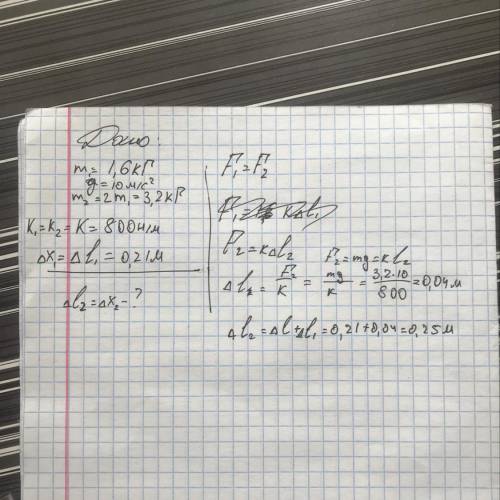 Дано:
m₁ = 1,6 кг
g = 10 м/с²
m₂ = 2 m₁ = 3,2 кг
K₁ = K₂ = K = 800 н/м
Δx = Δl₁ = 0,21 м
Δl₂ = Δx₂ - ?
F₁ = F₂
F₂ = кΔl₂
F₂ = mg = кl₂
Δl₂ = F₂/к = mg/к = 3,2·10/800 = 0,04 м
Δl₂ = Δl + Δl₁ = 0,21 + 0,04 = 0,25 м